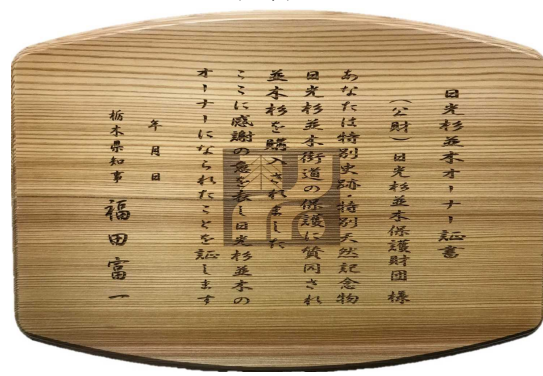 日光杉並木オーナー証書
（公財）日光杉並木保護財団 様
あなたは特別史跡・特別天然記念物
日光杉並木街道の保護に賛同され
並木杉を購入されました
ここに感謝の意を表し日光杉並木の
オーナーになられたことを証します
年 月 日
栃木県知事 福田富一